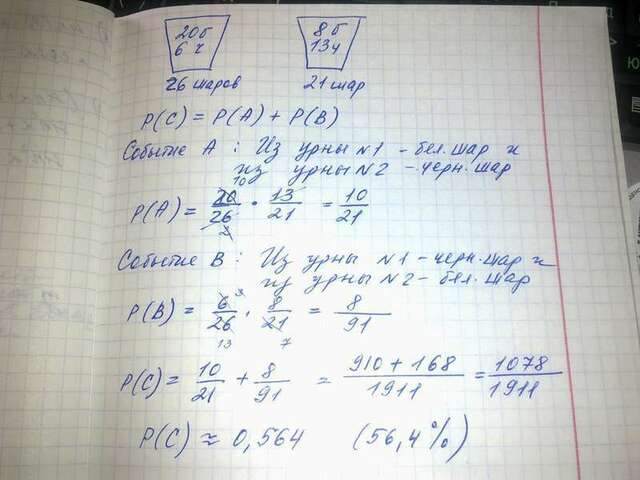 20б 8б
6 ч 13ч
26 шаров 21 шар
P(C) = P(A) + P(B)
Событие A : Из урны №1 - бел.шар и
из урны №2 - черн.шар
P(A) = 20/26 · 13/21 = 10/21
10
2
Событие B : Из урны №1 - черн.шар и
из урны №2 - бел. шар
P(B) = 6/26 · 8/21 = 8/91
3
13 7
P(C) = 10/21 + 8/91 = 910 + 168/1911 = 1078/1911
P(C) ≈ 0,564 (56,4%)